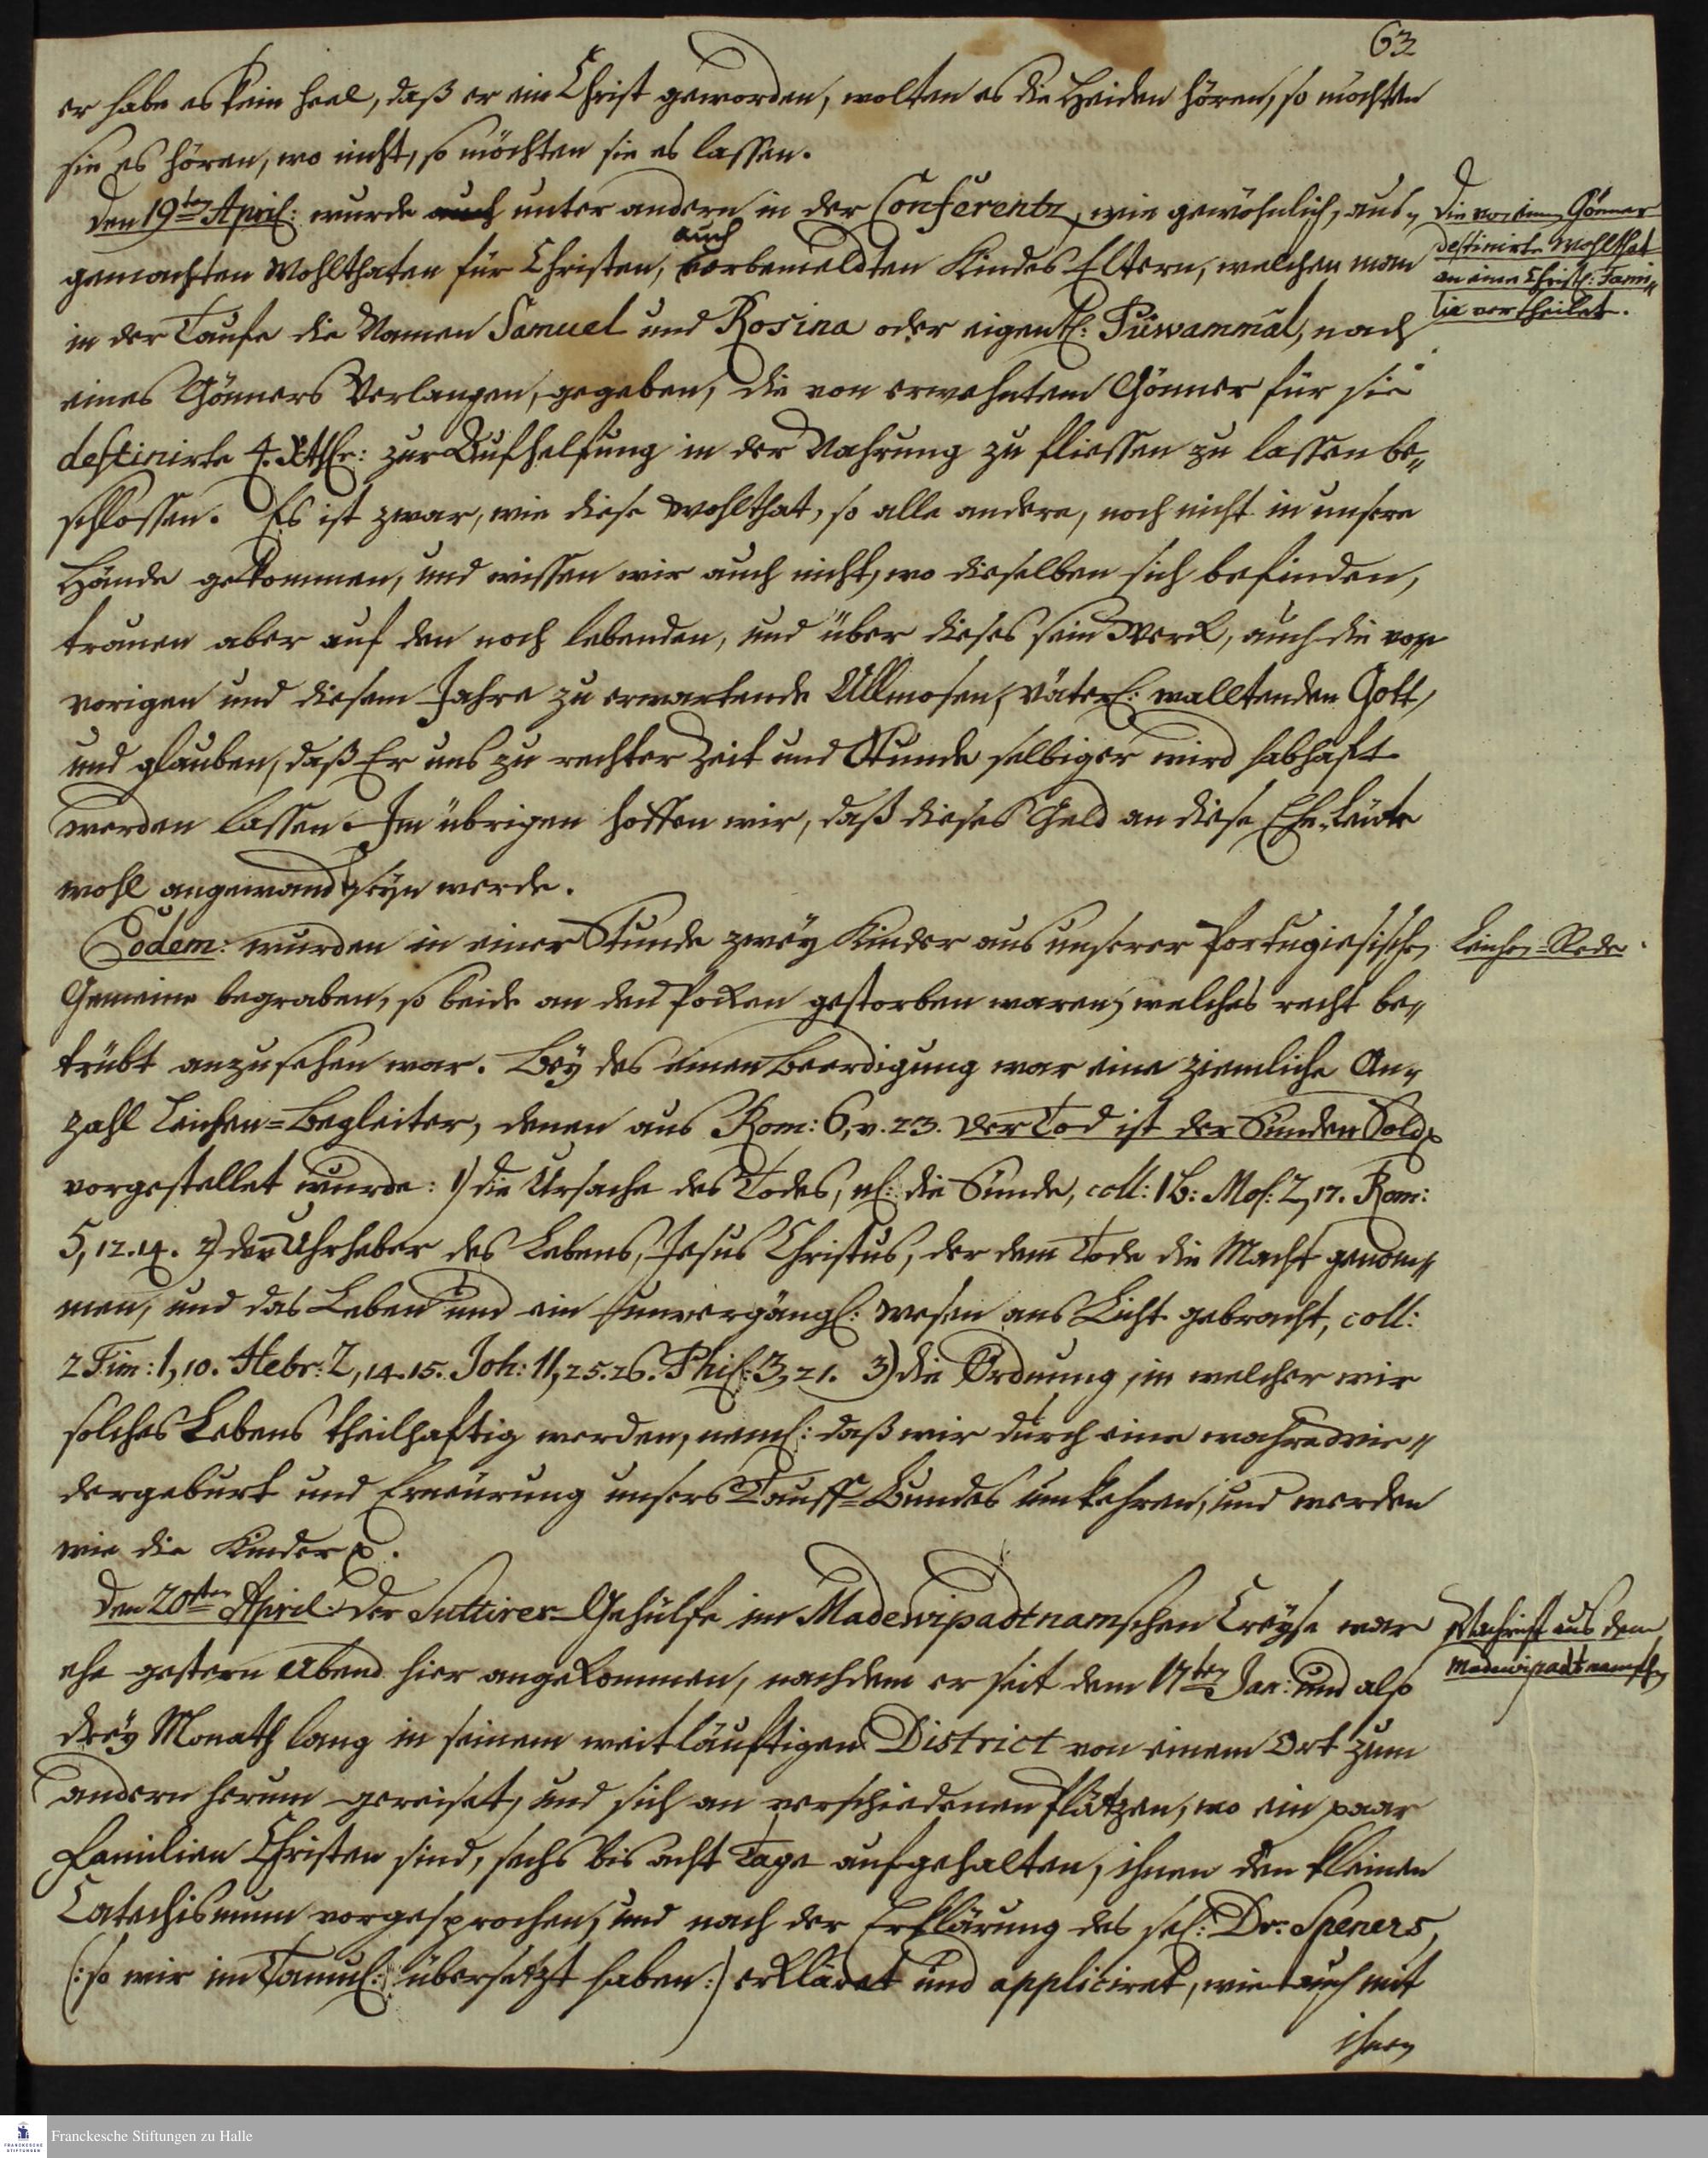 63
er habe es kein heel, daß er ein Christ geworden, wolten es die Heiden hören, so möchten
sie es hören, wo nicht, so möchten sie es lassen.
den 19ten April: wurde auch unter andern in der Conferentz, wie gewöhnlich, aus-
gemachten Wohlthaten für Christen, auch vorbemeldten Kindes Eltern, welchen man
in der Taufe die Namen Samuel und Rosina oder eigentl: Puwammál, nach
eines Gönners Verlangen, gegeben, die von erwehntem Gönner für sie
destinirte 4. Rthlr: zur Aufhelfung in der Nahrung zu fliessen zu lassen be-
schlossen. Es ist zwar, wie diese Wohlthat, so alle andere, noch nicht in unsere
Hände gekommen, und wissen wir auch nicht, wo dieselben sich befinden,
trauen aber auf den noch lebenden, und über dieses sein Werck, auch die von
vorigen und diesem Jahre zu erwartende Allmosen, väterl: walltenden Gott,
und glauben, daß Er uns zu rechter Zeit und Stunde selbiger wird habhaft
werden lassen. Im übrigen hoffen wir, daß dieses Geld an diese Ehe-Leute
wohl angewandt seyn werde.
Die von einem Gönner
destinirte Wohlthat
an eine Christl: Fami-
lie vertheilet.
Eodem: wurden in einer Stunde zwey Kinder aus unserer Portugiesischen
Gemeine begraben, so beide an den Pocken gestorben waren, welches recht be-
trübt anzusehen war. Bey des einen Beerdigung war eine ziemliche An-
zahl Leichen-Begleiter, denen aus Rom: 6, v. 23. Der Tod ist der Sünden Sold
vorgestellet wurde: 1) die Ursache des Todes, nl: die Sünde, coll: 1 B: Mos: 2, 17. Rom:
5, 12. 14. 2) der Uhrheber des Lebens, Jesus Christus, der dem Tode die Macht genom-
men, und das Leben und ein unvergängl: Wesen ans Licht gebracht, coll:
2 Tim: 1, 10. Hebr: 2, 14. 15. Joh: 11, 25. 26. Phil: 3, 21. 3) die Ordnung, in welcher wir
solches Lebens theilhaftig werden, neml: daß wir durch eine wahre Wie-
dergeburt und Erneurung unsers Tauff-Bundes umkehren, und werden
wie die Kinder.
Leichen-Rede.
Den 20ten April Der Suttirer-Gehülfe im Madewipadtnamschen Creyse war
ehe gestern Abend hier angekommen, nachdem er seit dem 17ten Jan: und also
drey Monath lang in seinem weitläuftigen District von einem Ort zum
andern herum gereiset, und sich an verschiedenen Plätzen, wo ein paar
Familien Christen sind, sechs bis acht Tage aufgehalten, ihnen den kleinen
Catechismum vorgesprochen, und nach der Erklärung des sel: Dr: Speners,
(: so wir im Tamul: übersetzt haben :) erkläret und appliciret, wie auch mit
ihnen
Nachricht aus dem
Madewipadtnamsch
Franckesche Stiftungen zu Halle